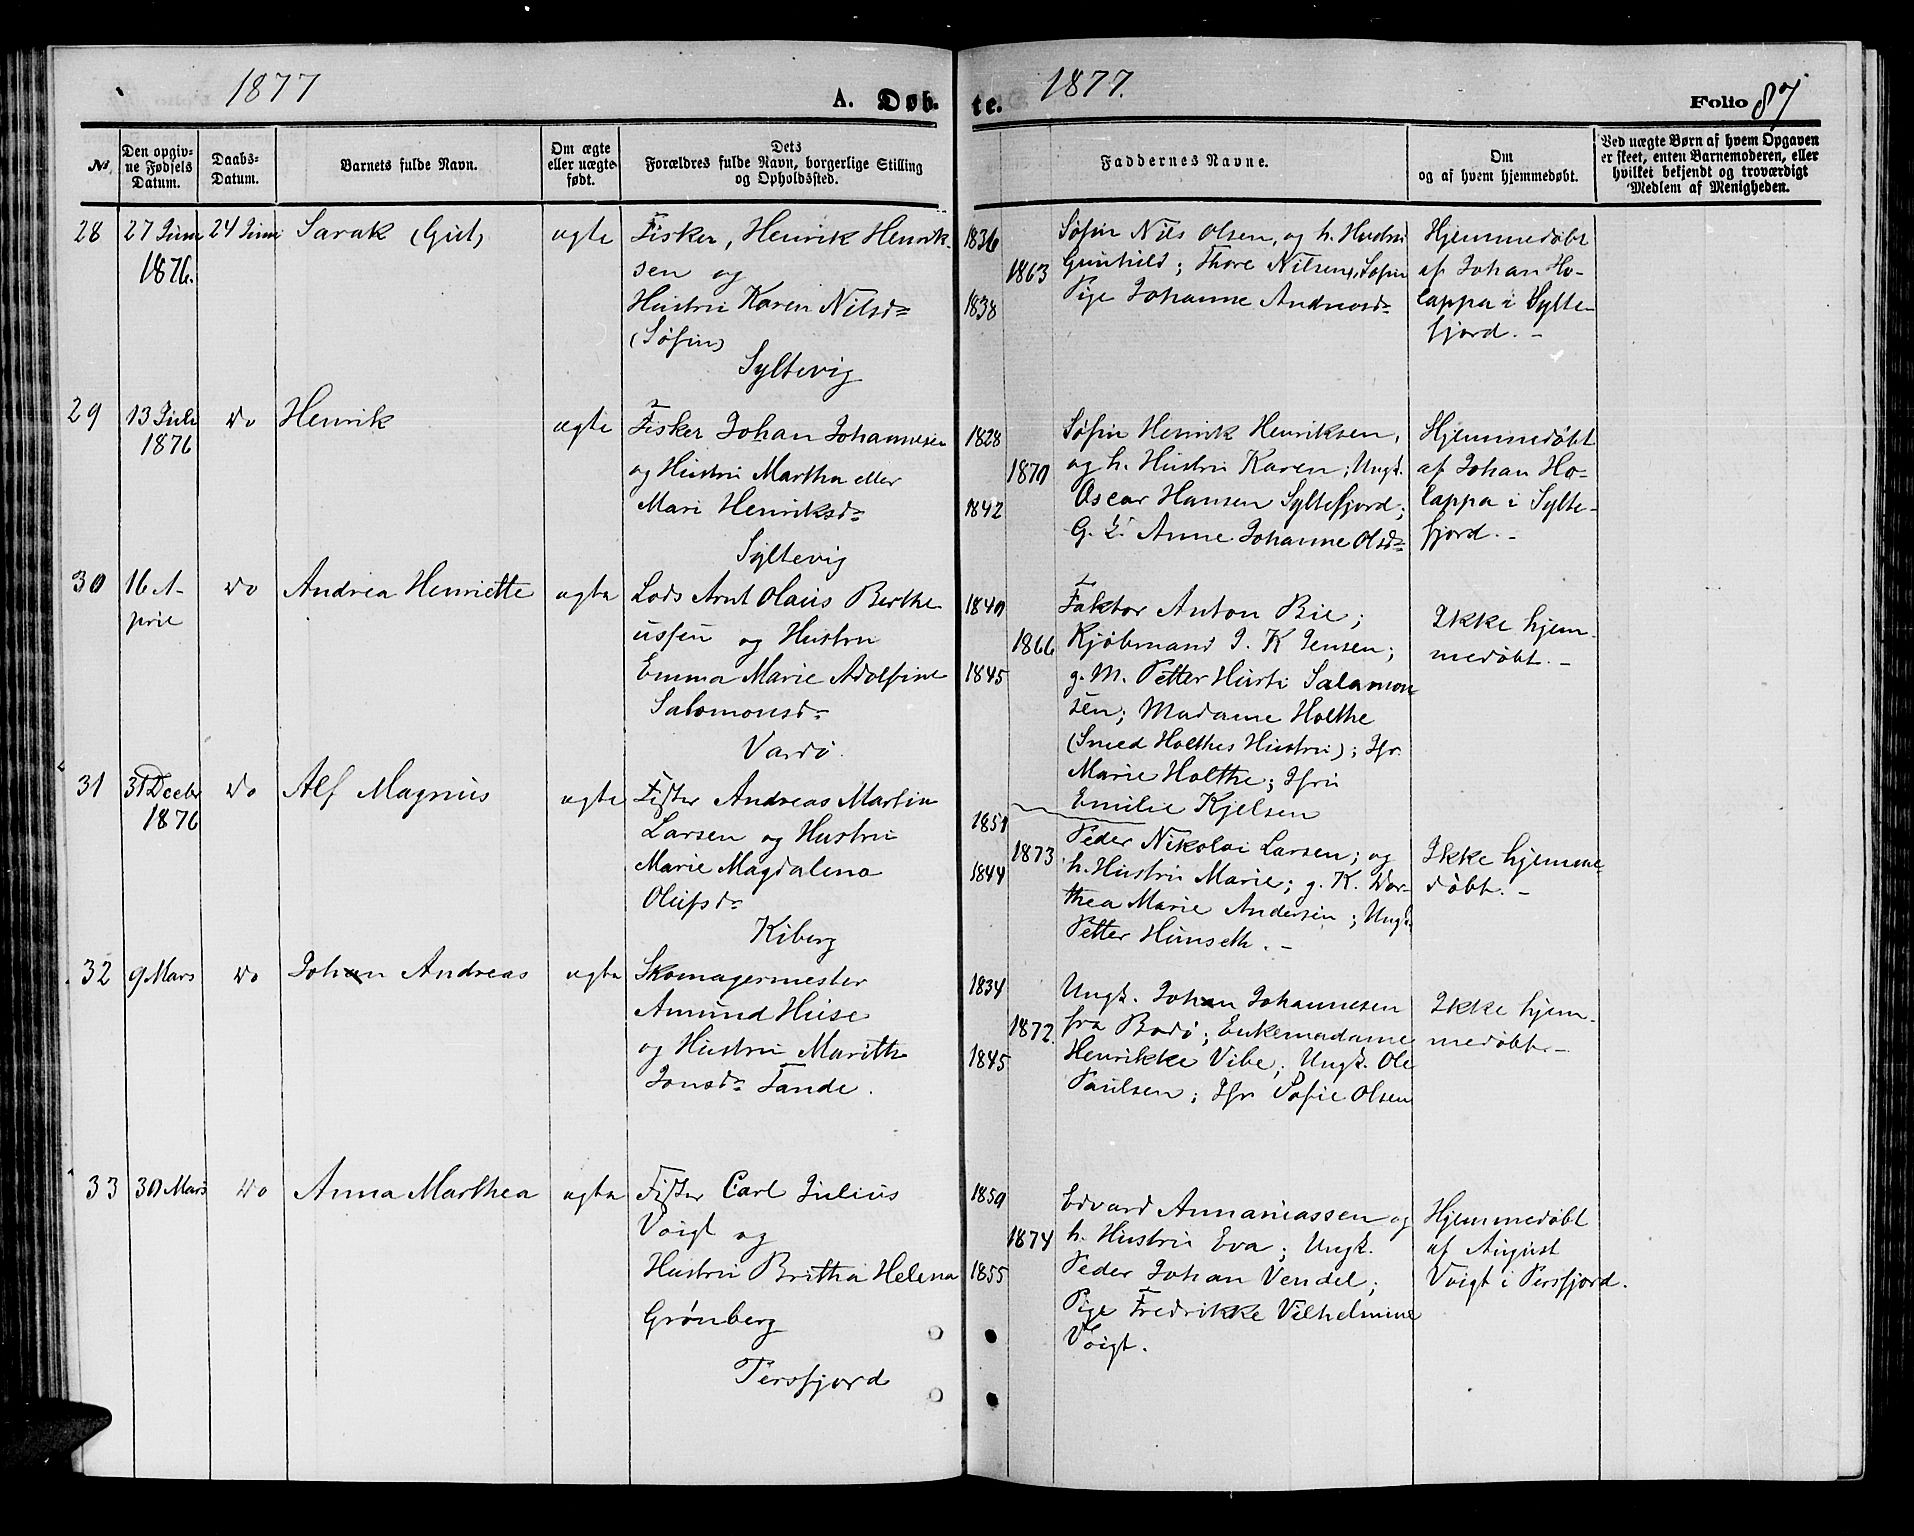 1877
A. Døb-
№
Den opgiv-
ne Fødsels
Datum.
Daabs-
Datum.
Barnets fulde Navn.
Om ægte
eller uægte
født.
Dets
Forældres fulde Navn, borgerlige Stilling
og Opholdssted.
28
27 Juni
1876.
24 Juni
Sarak (Gut)
ægte
Fisker, Henrik Henrik-
sen og
Hustru Karen Nilsdr
(Søfin)
Syltevig
29
13 Juli
1876
do
Henrik
ægte
Fisker Johan Johannesen
og Hustru Martha eller
Mari Henriksdr
Syltevig
30
16 A-
pril
do
Andrea Henriette
ægte
Lods Arnt Olaus Berthe-
ussen og Hustru
Emma Marie Adolfine
Salomonsdr
Vardø.
31
31 Decbr
1876
do
Alf Magnus
ægte
Fisker Andreas Martin
Larsen og Hustru
Marie Magdalena
Olufsdr
Kiberg
32
9 Mars
do
Johan Andreas
ægte
Skomagermester
Amund Huse
og Hustru Marith
Jonsdr Tande.
33
30 Mars
do
Anna Marthea
ægte
Fisker Carl Julius
Voigt og
Hustru Britha Helena
Grønberg
Persfjord
te.
1877.
Folio 87
Faddernes Navne.
Om
og af hvem hjemmedøbt.
Ved uægte Børn af hvem Opgaven
er skeet, enten Barnemoderen, eller
hvilket bekjendt og troværdigt
Medlem af Menigheden.
1836
1863
1838
Søfin Nils Olsen, og h. Hustru
Gunhild; Thore Nilsen, Søfin
Pige Johanne Andreasdr
Hjemmedøbt
af Johan Ho-
lappa i Sylte-
fjord. -
1828
1870
1842
Søfin Henrik Henriksen,
og h. Hustru Karen; Ungk.
Oscar Hansen Syltefjord;
G. K. Anne Johanne Olsdr
Hjemmedøbt
af Johan Ho-
lappa i Sylte-
fjord. -
1840
1866
1845
Faktor Anton Bie;
Kjøbmand J. K Jensen;
g. M. Petter Husti Salamon
sen; Madame Holthe
(Smed Holthes Hustru); Jfr.
Marie Holthe; Jfru
Emilie Kjelsen
Ikke hjem-
medøbt. -
1851
1873
1844
Peder Nikolai Larsen; og
h. Hustru Marie; g. K. Dor-
thea Marie Andersen; Ungk.
Petter Hunseth. -
Ikke hjemme-
døbt. -
1834
1872.
1845
Ungk. Johan Johannesen
fra Bodø; Enkemadame
Henrikke Vibe; Ungk. Ole
Paulsen; Jfr Sofie Olsen
Ikke hjem-
medøbt -
1850
1874
1855
Edvard Annaniassen og
h. Hustru Eva; Ungk.
Peder Johan Vendel;
Pige Fredrikke Vilhelmine
Voigt.
Hjemmedøbt
af August
Voigt i Persfjord.